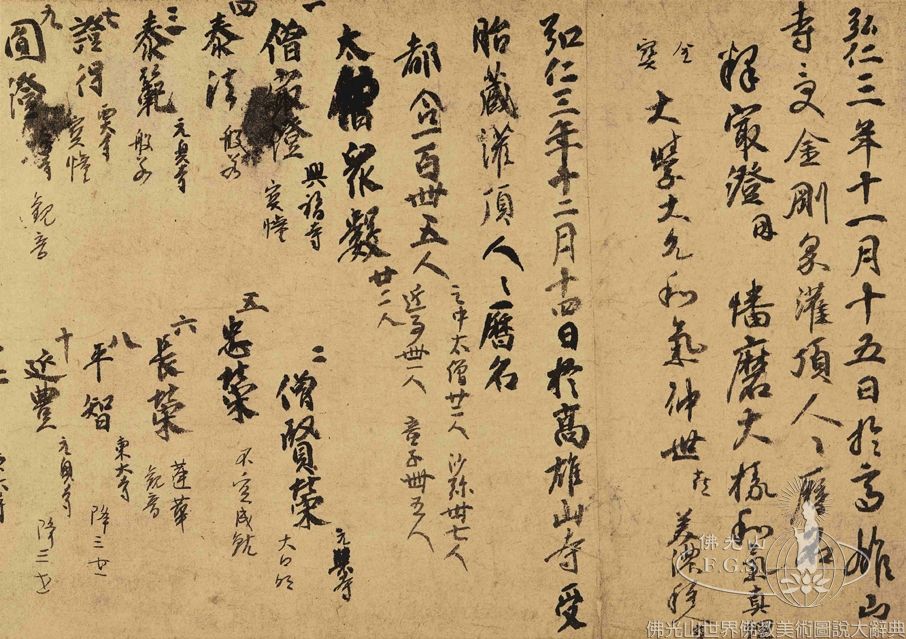 弘仁三年十一月十五日於高雄山
寺受金剛界灌頂人〻曆名
釋最澄 因 播磨大掾和氣真綱
金
寶
大學大允和氣仲世 喜 美濃種人
弘仁三年十二月十四日於高雄山寺受
胎藏灌頂人〻曆名
都合一百卌五人
之中太僧廿二人 沙弥卅七人
近事卌一人 童子卌五人
太僧衆數 廿二人
一 僧最澄 興福寺 寶幢
二 僧賢榮 元興寺 大日
四 泰法 般若
五 忠榮 不空成就
三 泰範 元興寺 般若
六 長榮 蓮華 觀音
七 證得 寶幢
八 平智 東大寺 降三世
九 圓澄 觀音
十 近豊 元興寺 降三世
佛光山
F.G.S.
佛光山世界佛教美術圖說大辭典